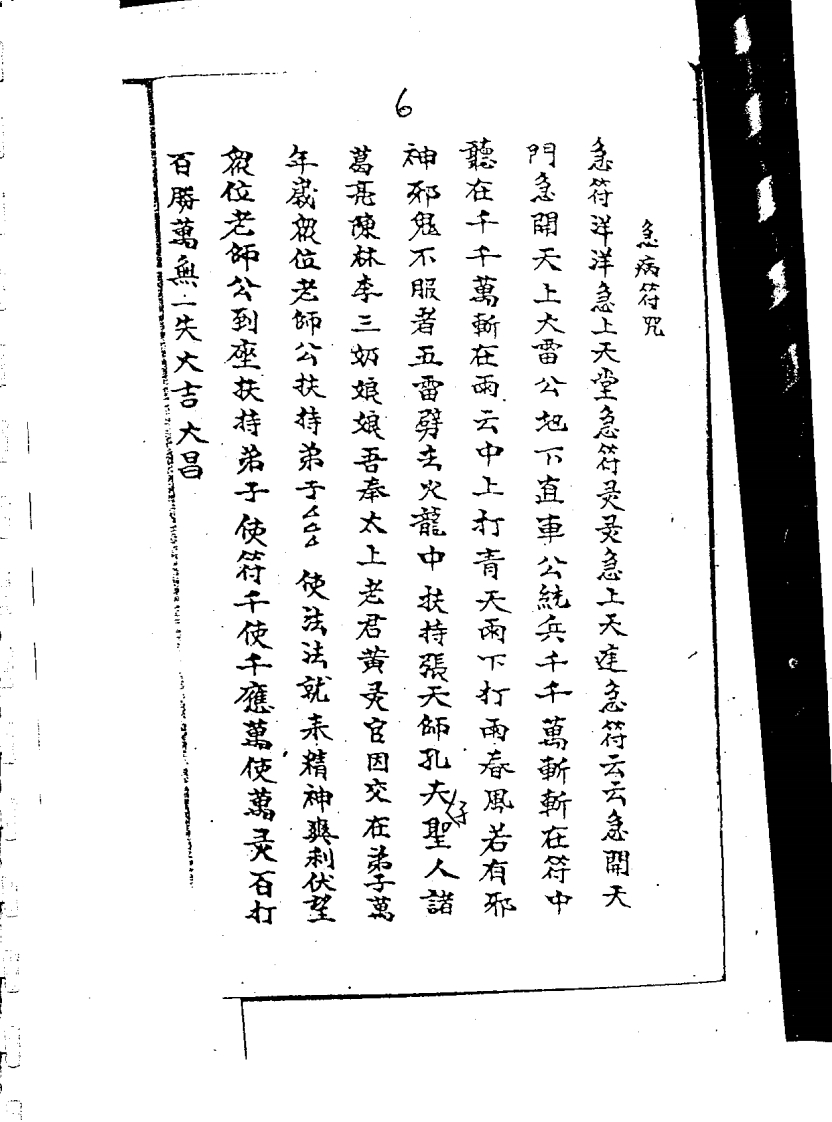 6
急病符咒
急符洋洋急上天堂急符灵灵急上天達急符云云急開天
門急開天上大雷公地下直車公統兵千千萬斬斬在符中
聽在千千萬斬在雨云中上打青天雨下打雨春風若有邪
神邪鬼不服者五雷劈在火龍中扶持張天師孔夫仔聖人諸
葛亮陳林李三奶娘娘吾奉太上老君黃灵官因交在弟子萬
年歲眾位老師公扶持弟子厶厶厶使法法就来精神爽利伏望
眾位老師公到座扶持弟子使符千使千應萬使萬灵百打
百勝萬無一失大吉大昌